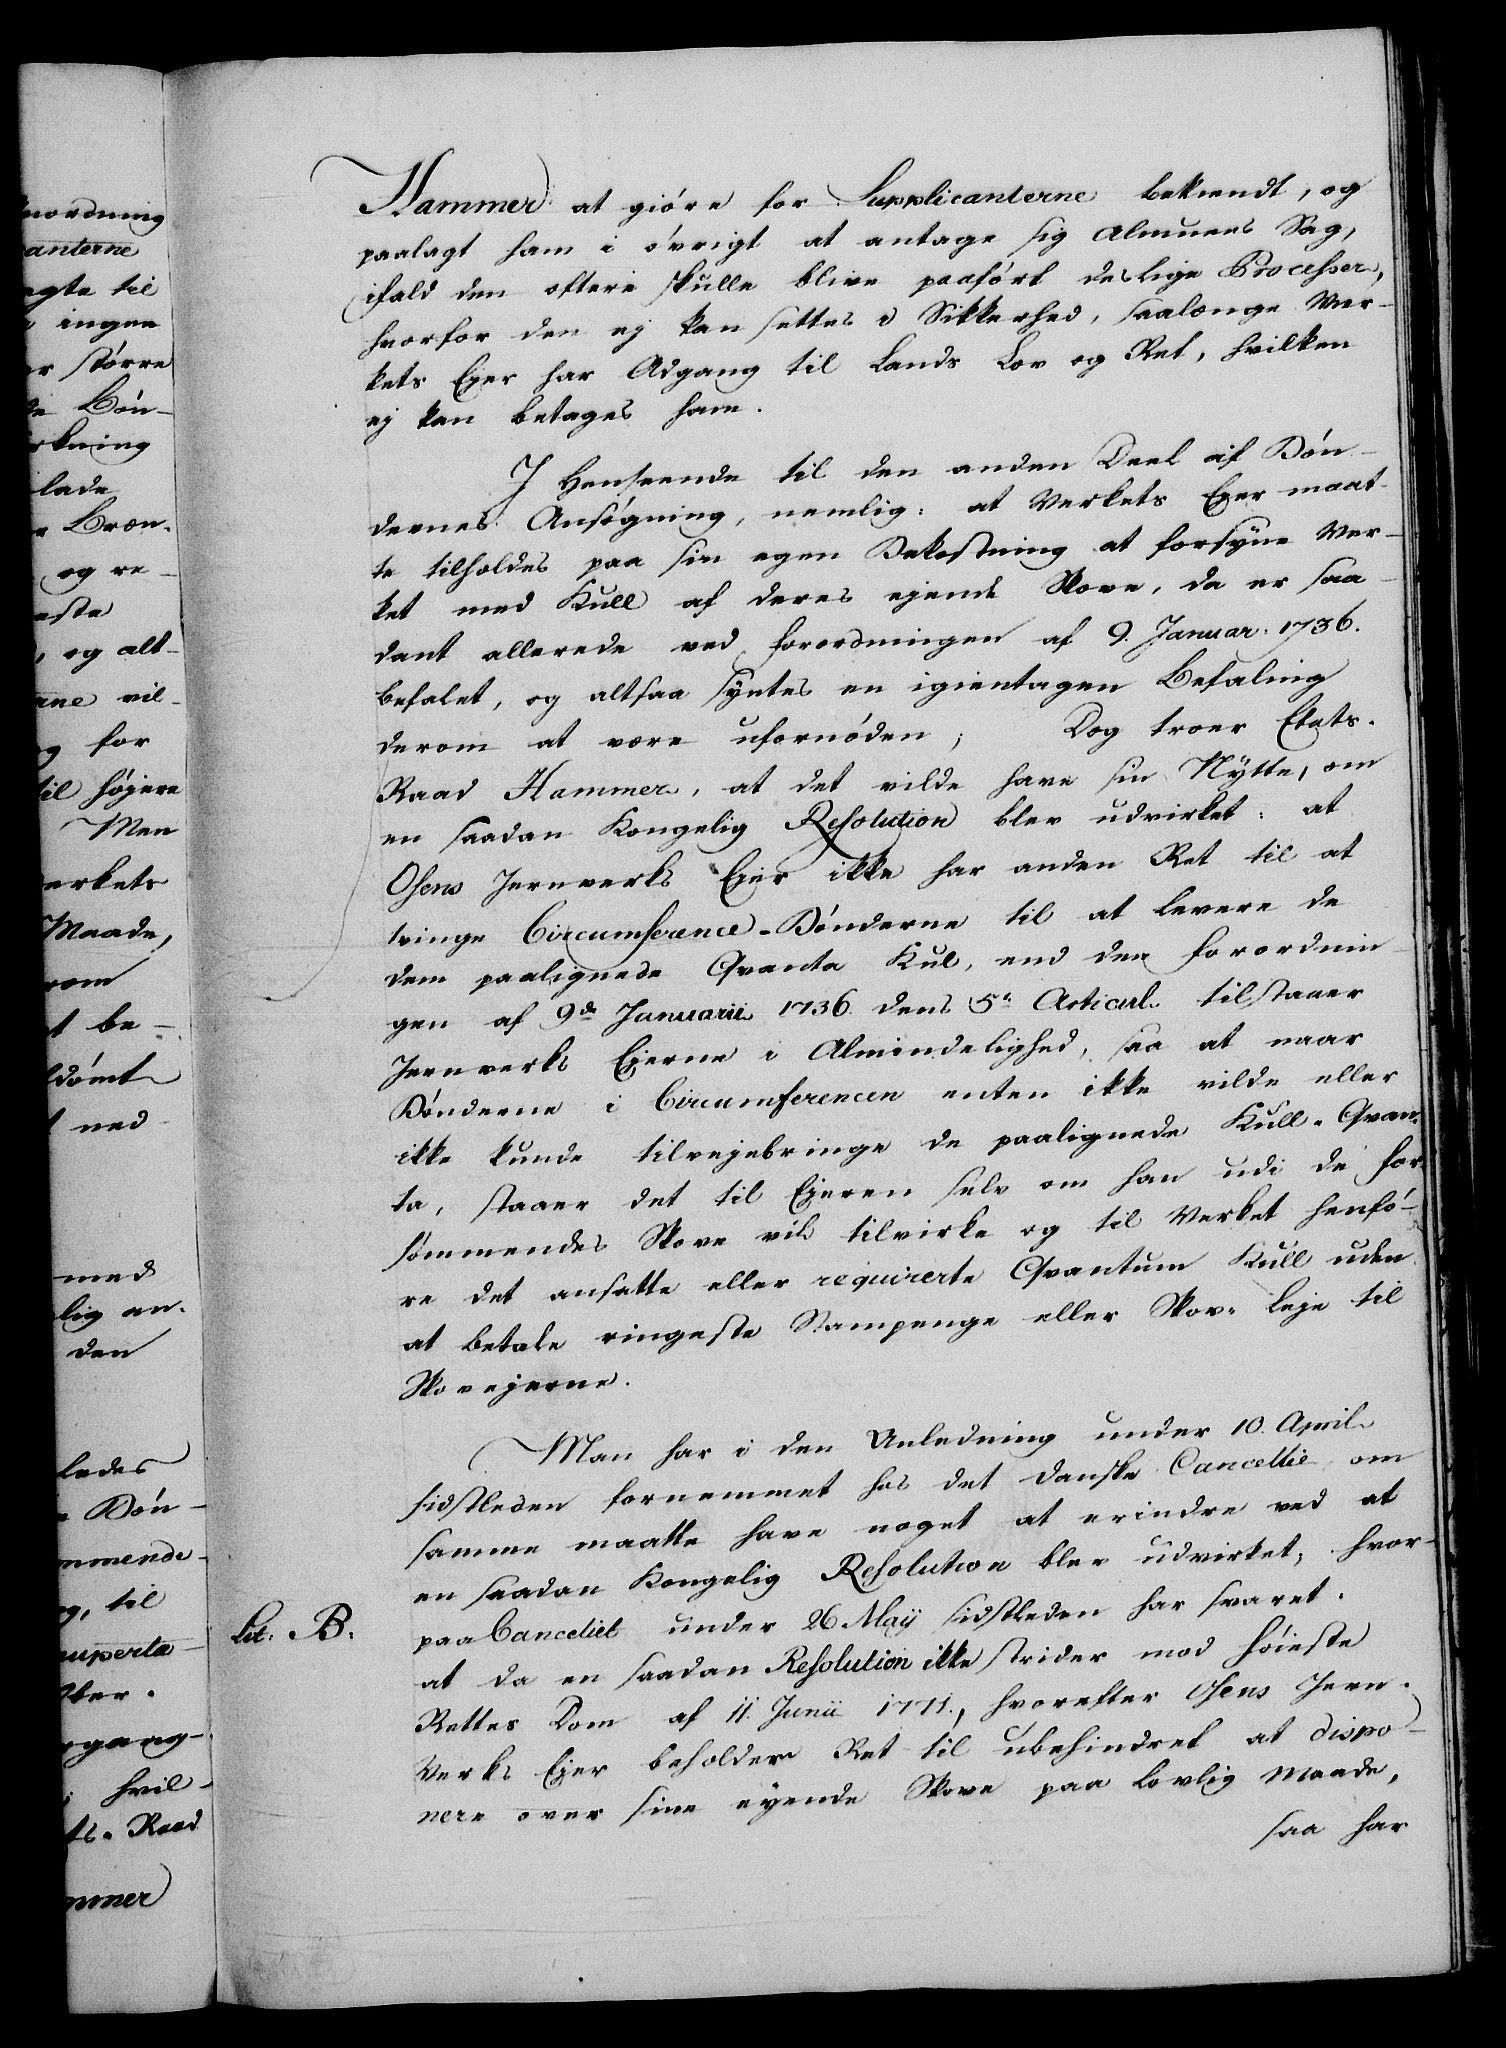 Hammer at giöre for Supplicanterne bekiendt, og
paalagt ham i övrigt at antage sig Almuens Sag,
ifald den oftere skulle blive paafört deslige Processer,
hvorfor den ej kan settes i Sikkerhed, saalænge Ver-
kets Ejer har Adgang til Lands Lov og Ret, hvilken
ej kan betages ham.
I Henseende til den anden Deel af Bön-
dernes Ansögning, nemlig: at Verkets Ejer maat-
te tilholdes paa sin egen Bekostning at forsyne Ver-
ket med Kull af deres ejende Skove, da er saa-
dant allerede ved forordningen af 9. Januar: 1736.
befalet, og altsaa syntes en igientagen Befaling
derom at være ufornöden; Dog troer Etats-
Raad Hammer, at det vilde have sin Nytte, om
en saadan Kongelig Resolution blev udvirket: at
Osens Jernverks Ejer ikke har anden Ret til at
tvinge Circumference-Bönderne til at levere de
dem paalignede Qvanta Kul, end den forordnin-
gen af 9de Januarii 1736. dens 5te Articul tilstaaer
Jernverks Ejerne i Almindelighed, saa at naar
Bönderne i Circumferencen enten ikke vilde eller
ikke kunde tilvejebringe de paalignede Kull-Qvan-
ta, staaer det til Ejeren selv om han udi de for-
sömmendes Skove vil tilvirke og til Verket henfö-
re det ansatte eller requirerte Qvantum Kull uden
at betale ringeste Stampenge eller Skov-Leje til
Skovejerne.
Man har i den Anledning under 10. April
sidstleden fornemmet hos det danske Cancellie om
samme maatte have noget at erindre ved at
en saadan Kongelig Resolution blev udvirket, hvor-
Lit: B. paa Canceliet under 26 Maij sidstleden har svaret:
at da en saadan Resolution ikke strider mod höieste
Rettes Dom af 11. Junii 1771., hvorefter Osens Jern-
Verks Ejer beholder Ret til ubehindret at dispo-
nere over sine eyende Skove paa lovlig Maade,
saa har